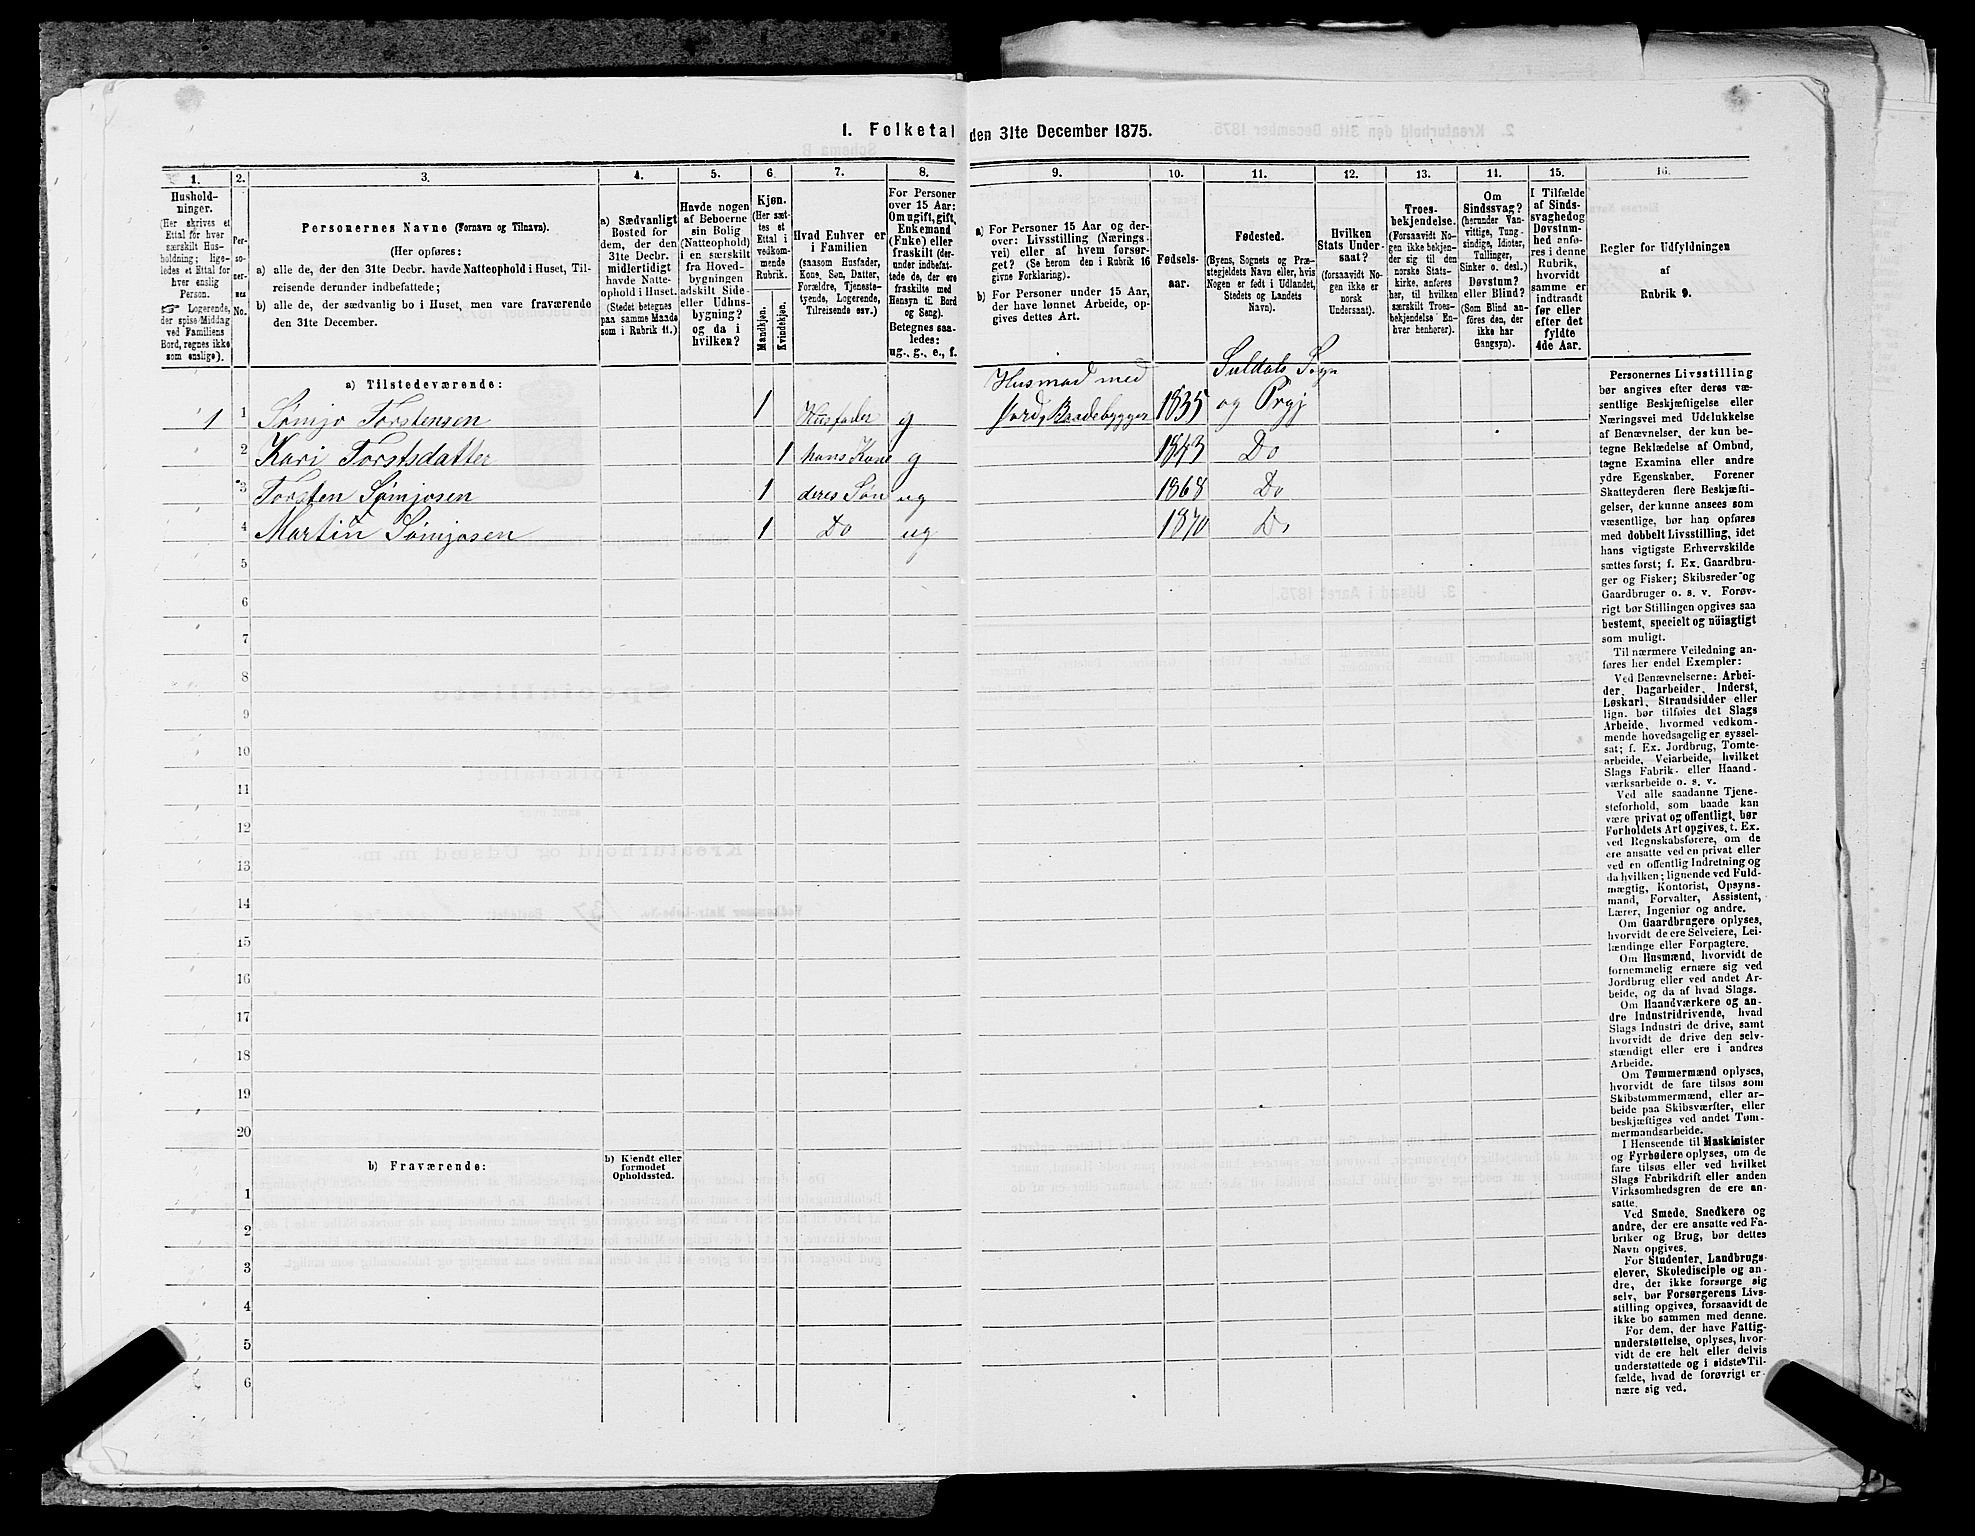 1. Folketal den 31te December 1875.
1.
2.
3.
4.
5.
6.
7.
8.
9.
10.
11.
12.
13.
11.
15.
16.
Hushold-
ninger.
(Her skrives et
Ettal for hver
særskilt Hus-
holdning; lige-
ledes et Ettal for
hver enslig
Person.
☞ Logerende,
der spise Middag
ved Familiens
Bord, regnes ikke
som enslige).
Per-
so-
ner-
nes
No.
Personernes Navne (Fornavn og Tilnavn).
(Her opføres:
a) alle de, der den 31te Decbr. havde Natteophold i Huset, Til-
reisende derunder indbefattede;
b) alle de, der sædvanlig bo i Huset, men vare fraværende
den 31te December.
a) Sædvanligt
Bosted for
dem, der den
31te Decbr.
midlertidigt
havde Natte-
ophold i Huset.
(Stedet betegnes
paa samme Maade
som i Rubrik 11.)
Havde nogen
af Beboerne
sin Bolig
(Natteophold)
i en særskilt
fra Hoved-
bygningen
adskilt Side-
eller Udhus-
bygning?
og da i
hvilken?
Kjøn.
(Her sæt-
tes et
Ettal i
vedkom-
mende
Rubrik.
Mandkjøn.
Kvindekjøn.
Hvad Enhver er
i Familien
(saasom Husfader,
Kone, Søn, Datter,
Forældre, Tjeneste-
tyende, Logerende,
Tilreisende osv.)
For Personer
over 15 Aar:
Om ugift, gift,
Enkemand
(Enke) eller
fraskilt (der-
under indbefat-
tede de, der ere
fraskilte med
Hensyn til Bord
og Seng).
Betegnes saa-
ledes:
ug., g., e., f.
a) For Personer 15 Aar og der-
over: Livsstilling (Nærings-
vei) eller af hvem forsør-
get? (Se herom den i Rubrik 16
givne Forklaring).
b) For Personer under 15 Aar,
der have lønnet Arbeide, op-
gives dettes Art.
Fødsels-
aar.
Fødested.
(Byens, Sognets og Præ-
stegjeldets Navn eller, hvis
Nogen er født i Udlandet,
Stedets og Landets
Navn).
Hvilken
Stats Under-
saat?
(forsaavidt No-
gen ikke er
norsk
Undersaat).
Troes-
bekjendelse.
(Forsaavidt No-
gen ikke bekjen-
der sig til den
norske Stats-
kirke, anføres
her, til hvilken
særskilt Troes-
bekjendelse En-
hver henhører).
Om
Sindssvag?
(herunder Van-
vittige, Tung-
sindige, Idioter,
Tullinger,
Sinker o. desl.)
Døvstum?
eller Blind?
(Som Blind an-
føres den, der
ikke har
Gangsyn).
I Tilfælde
af Sinds-
svaghed og
Døvstum-
hed anfø-
res i denne
Rubrik,
hvorvidt
samme er
indtraadt
før eller
efter det
fyldte
4de Aar.
Regler for Udfyldningen
af
Rubrik 9.
a) Tilstedeværende:
1 1 Sømjo Torstensen 1 Husfader g Husmad med Jord, Baadebygger 1835 Suldals Sogn og Prgj
2 Kari Torstsdatter 1 hans Kone g 1843 Do
3 Torsten Sømjosen 1 deres Søn ug 1868 Do
4 Martin Sømjosen 1 Do ug 1870 Do
5
6
7
8
9
10
11
12
13
14
15
16
17
18
19
20
b) Fraværende:
b) Kjendt eller
formodet
Opholdssted.
1
2
3
4
5
6
Personernes Livsstilling
bør angives efter deres væ-
sentlige Beskjæftigelse eller
Næringsvei med Udelukkelse
af Benævnelser, der kun be-
tegne Beklædelse af Ombud,
tagne Examina eller andre
ydre Egenskaber. Forener
Skatteyderen flere Beskjæfti-
gelser, der kunne ansees som
væsentlige, bør han opføres
med dobbelt Livsstilling, idet
hans vigtigste Erhvervskilde
sættes først; f. Ex. Gaardbru-
ger og Fisker; Skibsreder og
Gaardbruger o. s. v. Forøv-
rigt bør Stillingen opgives saa
bestemt, specielt og nöiagtigt
som muligt.
Til nærmere Veiledning an-
føres her endel Exempler:
Ved Benævnelserne: Arbei-
der, Dagarbeider, Inderst,
Løskarl, Strandsidder eller
lign. bør tilføies det Slags
Arbeide, hvormed vedkom-
mende hovedsagelig er syssel-
sat; f. Ex. Jordbrug, Tomte-
arbeide, Veiarbeide, hvilket
Slags Fabrik- eller Haand-
værksarbeide o. s. v.
Ved alle saadanne Tjene-
steforhold, som baade kan
være privat og offentligt, bør
Forholdets Art opgives, t. Ex.
ved Regnskabsførere, om de
ere ansatte ved en privat eller
ved en offentlig Indretning og
da hvilken; lignende ved Fuld-
mægtig, Kontorist, Opsyns-
mand, Forvalter, Assistent,
Lærer, Ingeniør og andre.
Om Gaardbrugere oplyses,
hvorvidt de ere Selveiere, Lei-
lændinge eller Forpagtere.
Om Husmænd, hvorvidt de
fornemmelig ernære sig ved
Jordbrug eller ved andet Ar-
beide, og da af hvad Slags.
Om Haandværkere og an-
dre Industridrivende, hvad
Slags Industri de drive, samt
hvorvidt de drive den selv-
stændigt eller ere i andres
Arbeide.
Om Tømmermænd oplyses,
hvorvidt de fare tilsøs som
Skibstømmermænd, eller ar-
beide paa Skibsværfter, eller
beskjæftiges ved andet Tøm-
mermandsarbeide.
I Henseende til Maskinister
og Fyrbødere oplyses, om de
fare tilsøs eller ved hvilket
Slags Fabrikdrift eller anden
Virksomhedsgren de ere an-
satte.
Ved Smede, Snedkere og
andre, der ere ansatte ved Fa-
briker og Brug, bør dettes
Navn opgives.
For Studenter, Landbrugs-
elever, Skoledisciple og an-
dre, der ikke forsørge sig
selv, bør Forsørgerens Livs-
stilling opgives, forsaavidt de
ikke bo sammen med denne.
For dem, der have Fattig-
understøttelse, oplyses, hvor-
vidt de ere helt eller delvis
understøttede og i sidste Til-
fælde, hvad de forøvrigt er-
nære sig ved.